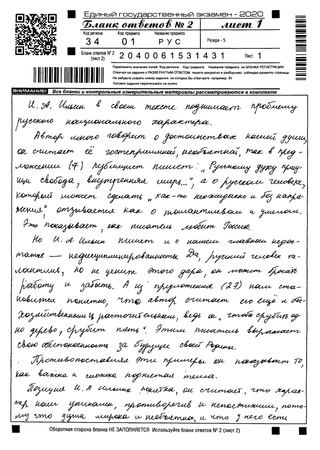 Единый государственный экзамен - 2020
Бланк ответов № 2 лист 1
Код региона Код предмета Название предмета
34 01 РУС Резерв - 5
Бланк ответов № 2 (лист 2) Лист
2040060531431 1
ВНИМАНИЕ! Все бланки и контрольные измерительные материалы рассматриваются в комплекте
И. А. Ильин в своём тексте поднимает проблему
русского национального характера.
Автор много говорит о достоинствах нашей души,
он считает её гостеприимной, необъятной, так в пред-
ложении (7) публицист пишет: "Русскому духу прису-
ща свобода, внутренняя ширь...", а о русском человеке,
который может сделать "как-то неожиданно и без напря-
жения", отзывается как о талантливом и умелом.
Это показывает, как писатель любит Россию.
Но И. А Ильин пишет и о нашем главном недос-
татке — недисциплинированность. Да, русский человек та-
лантлив, но не ценит этого дара, он может бросить
работу и забыть. А из предложения (27) нам ста-
новится понятно, что автор считает его ещё и бес-
хозяйственным и расточительным, ведь он, "чтоб срубить од-
но дерево, срубит пять". Этим писатель выражает
свою обеспокоенность за будущее своей Родины.
Противопоставляя эти примеры он показывает то,
как важна и сложна поднятая тема.
Позиция И. А Ильина понятна, он считает, что харак-
тер наш уникален, противоречив и непостижим, пото-
му что душа широка и необъятна, и что у него есть
Оборотная сторона бланка НЕ ЗАПОЛНЯЕТСЯ. Используйте бланк ответов № 2 (лист 2)